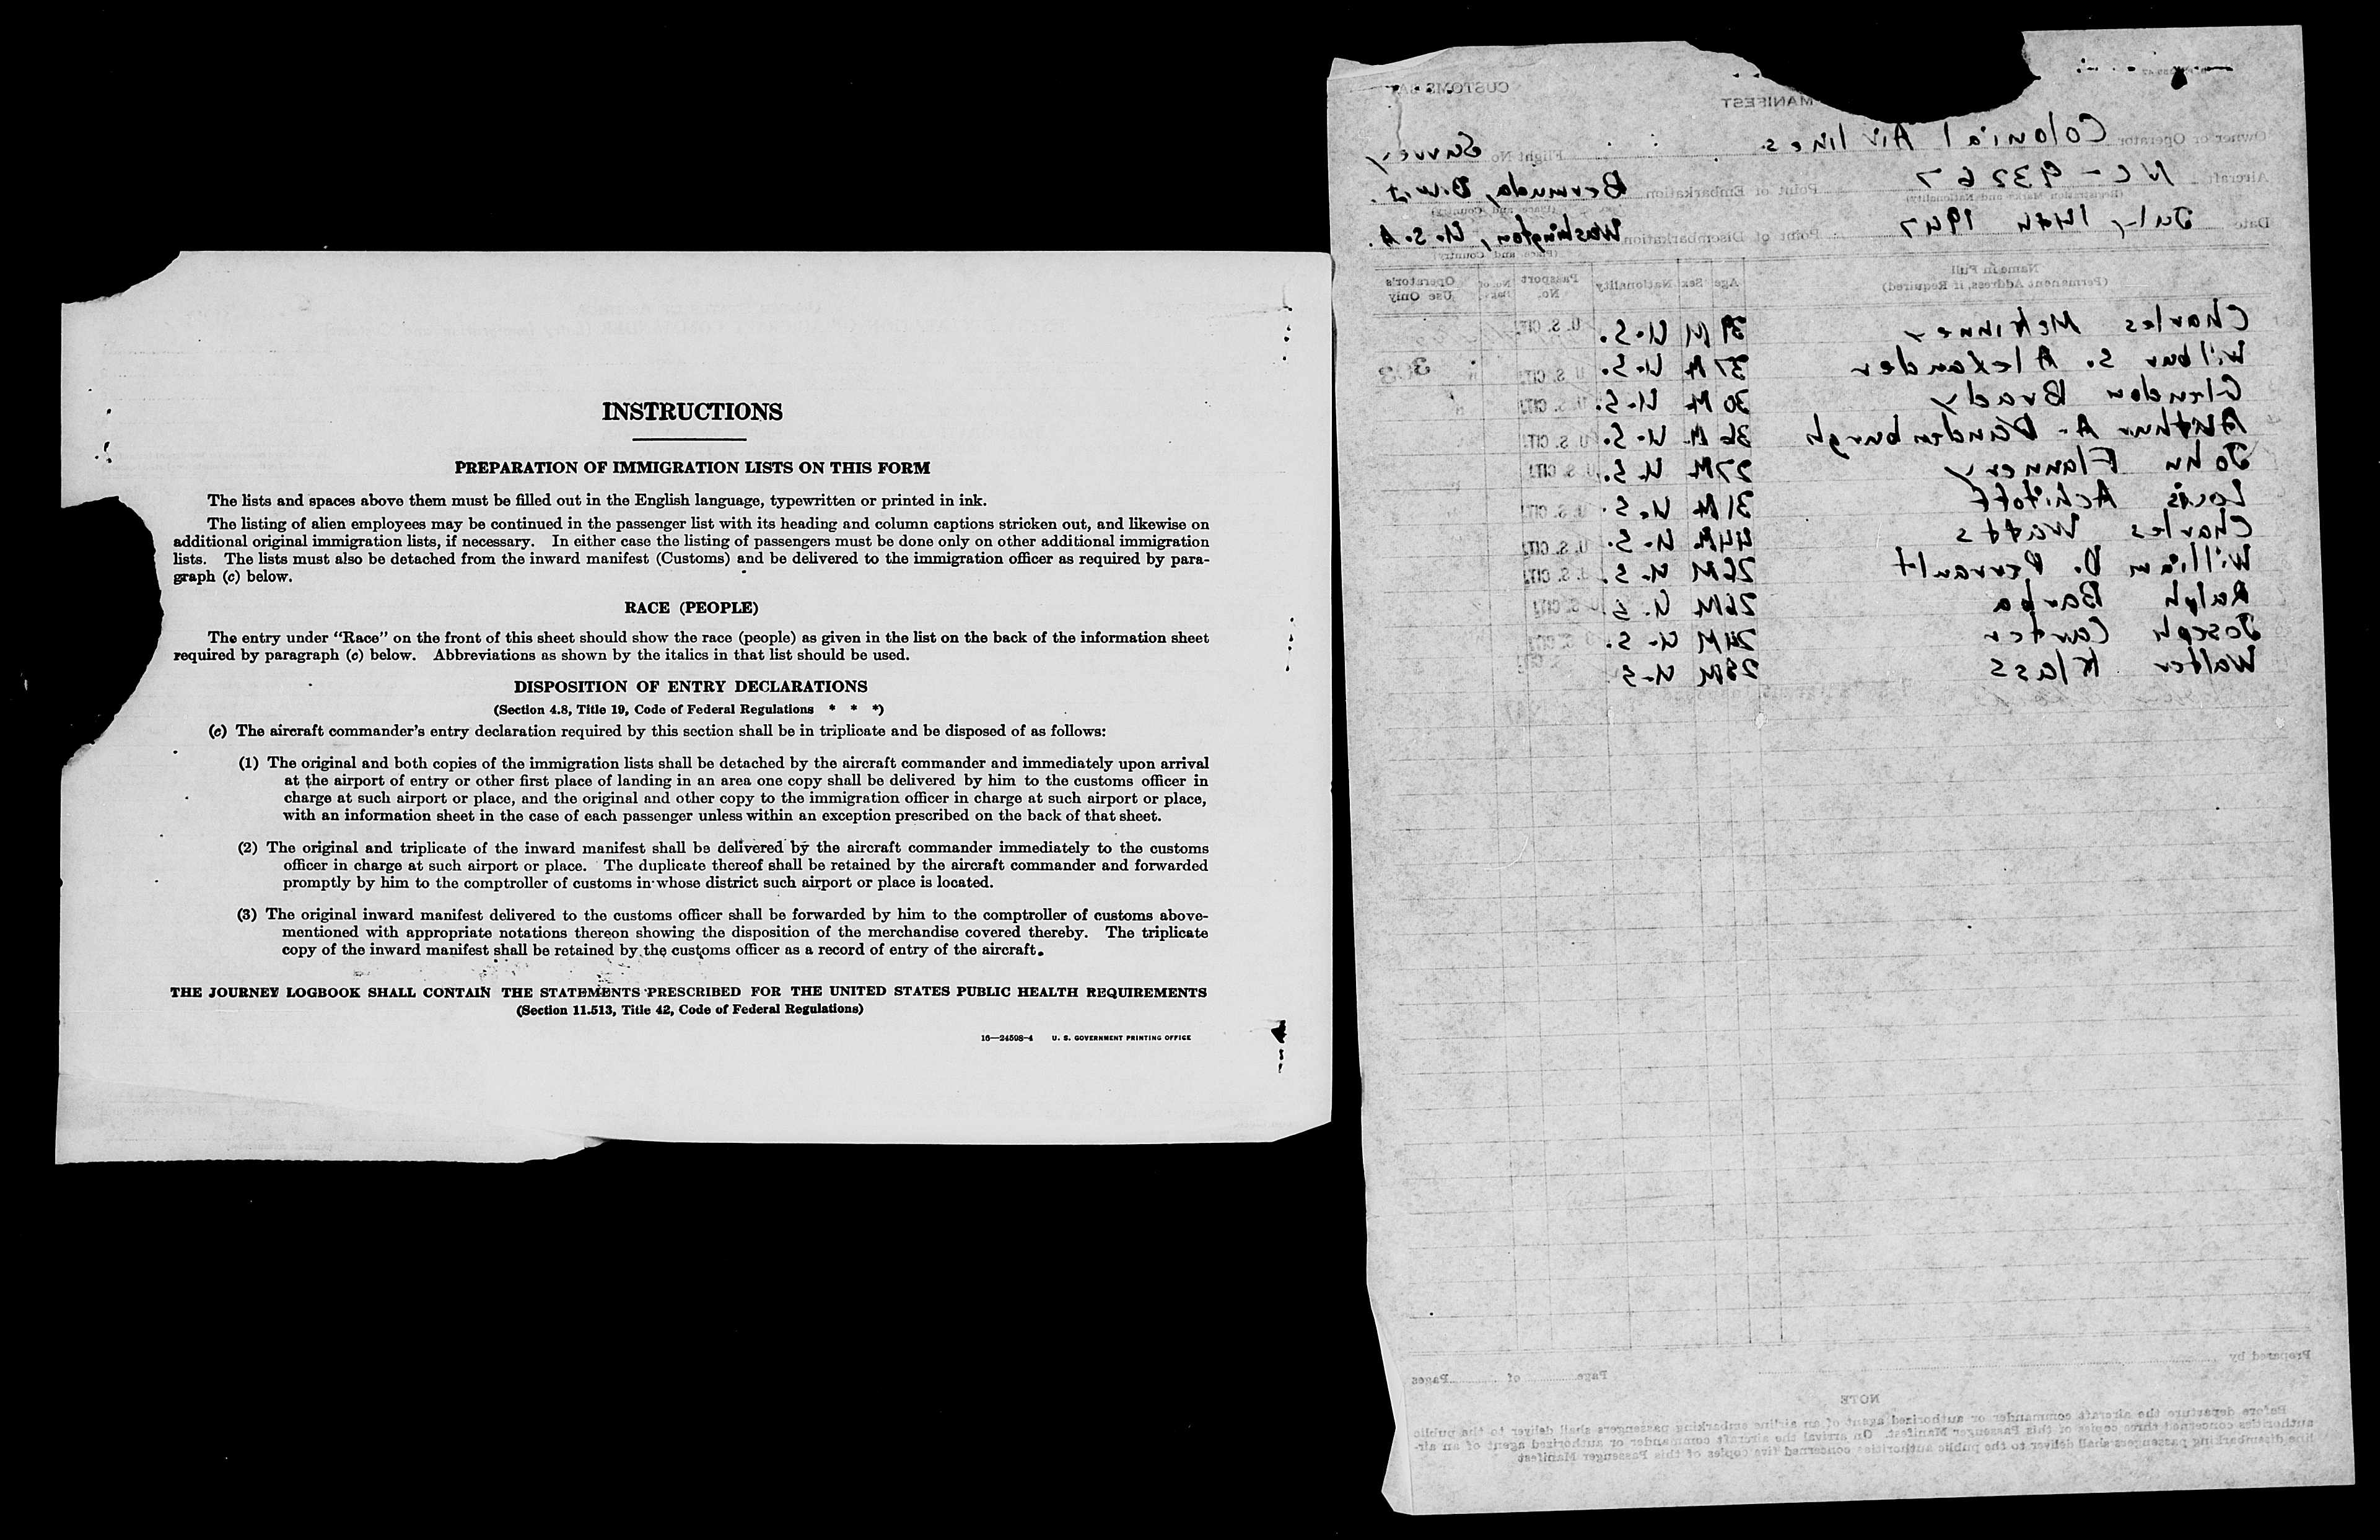 INSTRUCTIONS
PREPARATION OF IMMIGRATION LISTS ON THIS FORM
The lists and spaces above them must be filled out in the English language, typewritten or printed in ink.
The listing of alien employees may be continued in the passenger list with its heading and column captions stricken out, and likewise on
additional original immigration lists, if necessary. In either case the listing of passengers must be done only on other additional immigration
lists. The lists must also be detached from the inward manifest (Customs) and be delivered to the immigration officer as required by para-
graph (c) below.
RACE (PEOPLE)
The entry under "Race" on the front of this sheet should show the race (people) as given in the list on the back of the information sheet
required by paragraph (c) below. Abbreviations as shown by the italics in that list should be used.
DISPOSITION OF ENTRY DECLARATIONS
(Section 4.8, Title 19, Code of Federal Regulations * * *)
(c) The aircraft commander's entry declaration required by this section shall be in triplicate and be disposed of as follows:
(1) The original and both copies of the immigration lists shall be detached by the aircraft commander and immediately upon arrival
at the airport of entry or other first place of landing in an area one copy shall be delivered by him to the customs officer in
charge at such airport or place, and the original and other copy to the immigration officer in charge at such airport or place,
with an information sheet in the case of each passenger unless within an exception prescribed on the back of that sheet.
(2) The original and triplicate of the inward manifest shall be delivered by the aircraft commander immediately to the customs
officer in charge at such airport or place. The duplicate thereof shall be retained by the aircraft commander and forwarded
promptly by him to the comptroller of customs in whose district such airport or place is located.
(3) The original inward manifest delivered to the customs officer shall be forwarded by him to the comptroller of customs above-
mentioned with appropriate notations thereon showing the disposition of the merchandise covered thereby. The triplicate
copy of the inward manifest shall be retained by the customs officer as a record of entry of the aircraft.
THE JOURNEY LOGBOOK SHALL CONTAIN THE STATEMENTS PRESCRIBED FOR THE UNITED STATES PUBLIC HEALTH REQUIREMENTS
(Section 11.513, Title 42, Code of Federal Regulations)
16—24598-4 U. S. GOVERNMENT PRINTING OFFICE
MANIFEST CUSTOMS
Owner or Operator Colonial Air lines Flight No Survey
Aircraft NC - 93267 Point of Embarkation Bermuda, B.W.I.
(Registration Marks and Nationality) (Place and Country)
Date July 14th 1947 Point of Disembarkation Washington, U.S.A.
(Place and Country)
Name in Full (Permanent Address, if Required) Age Sex Nationality Passport No. Operator's Use Only
Charles McKinney 39 M U.S. U. S. CIT.
Wilbur S. Alexander 37 M U.S. U. S. CIT. 303
Glendon Brady 30 M U.S. U. S. CIT.
Arthur A. Vandenburgh 36 M U.S. U. S. CIT.
John Flannery 27 M U.S. U. S. CIT.
Louis Achitoff 31 M U.S. U. S. CIT.
Charles Watts 44 M U.S. U. S. CIT.
William D. Perrault 26 M U.S. U. S. CIT.
Ralph Barba 26 M U.S. U. S. CIT.
Joseph Carter 24 M U.S. U. S. CIT.
Walter Klass 28 M U.S.
Prepared by
Page of Pages
NOTE
Before departure the aircraft commander or authorized agent of an airline embarking passengers shall deliver to the public
authorities concerned three copies of this Passenger Manifest. On arrival the aircraft commander or authorized agent of an air-
line disembarking passengers shall deliver to the public authorities concerned five copies of this Passenger Manifest